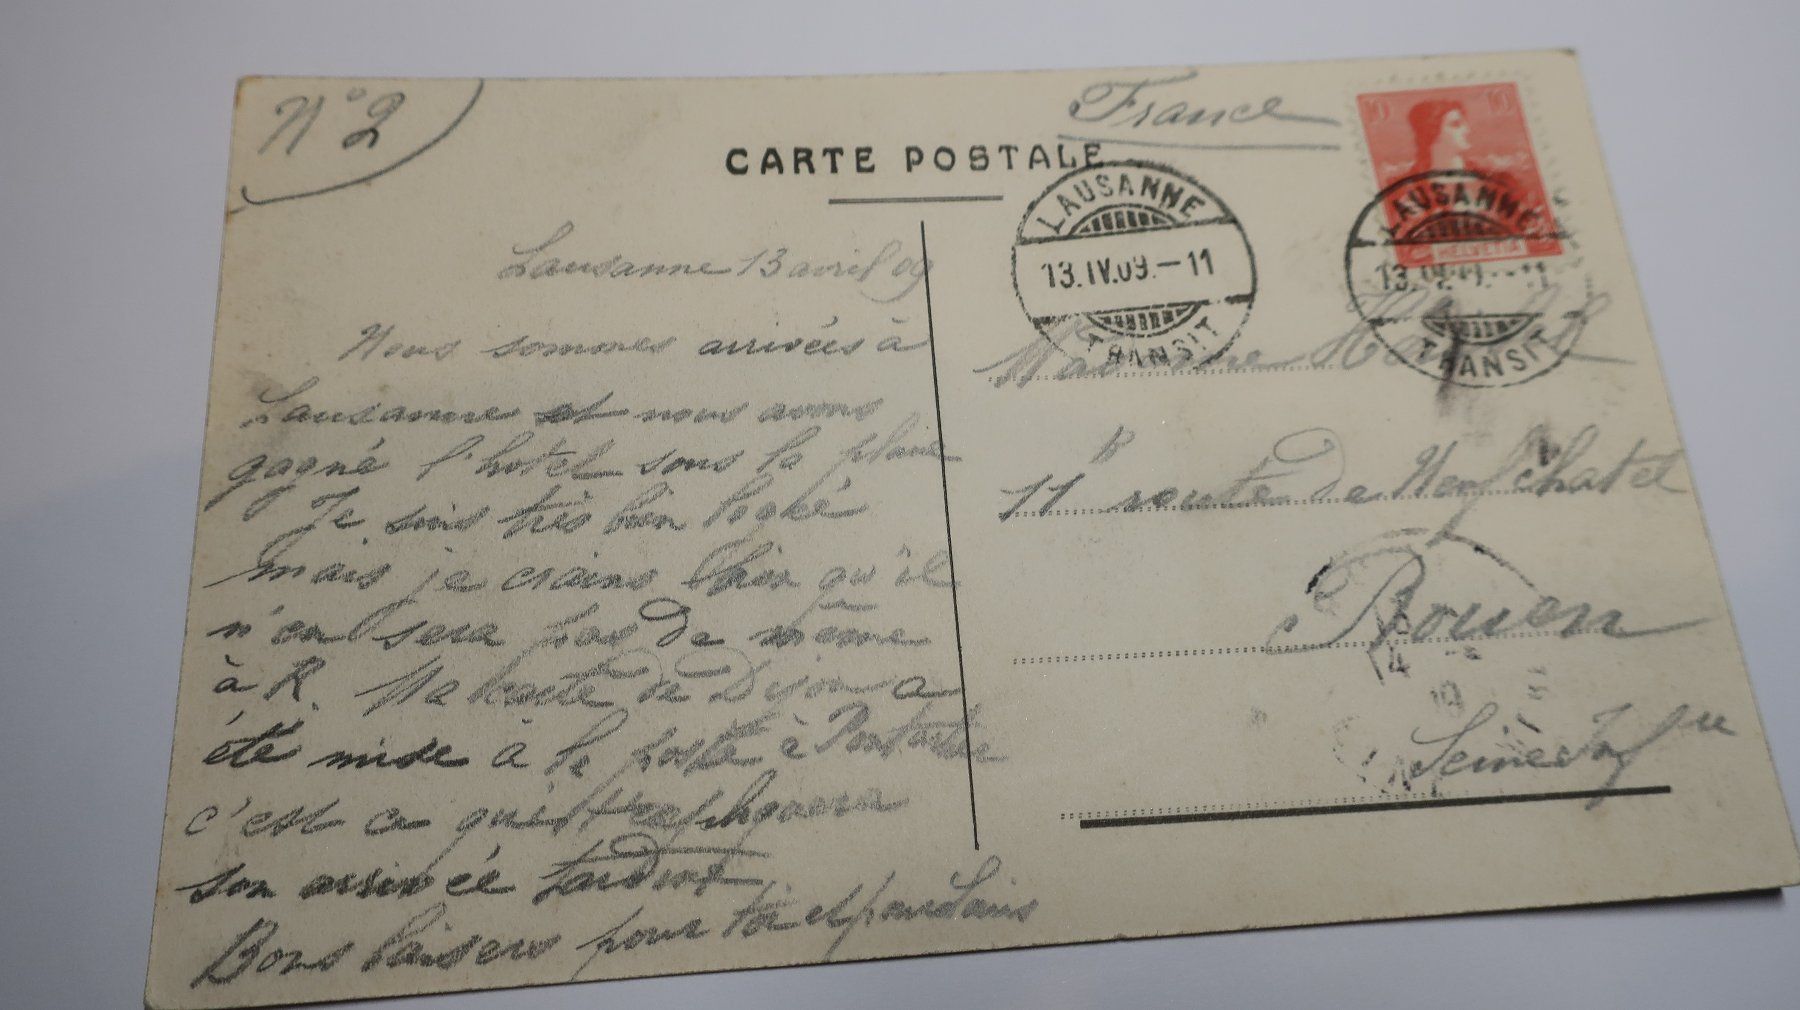 N° 2
France
CARTE POSTALE
10 10
HELVETIA
LAUSANNE
13.IV.09.-11
TRANSIT
LAUSANNE
13.
-11
TRANSIT
Lausanne 13 avril 09
Nous sommes arrivés à
Lausanne et nous avons
gagné l'hotel sous la pluie
Je suis très bien logé
mais je crains bien qu'il
n'en sera pas de même
à R. Ma carte de Dijon a
été mise à la poste à Pontarlier
c'est ce qui expliquera
son arrivée tardive
Bons baisers pour toi et pour Louis
Madame
11 b route de Neufchatel
Rouen
Seine Infre